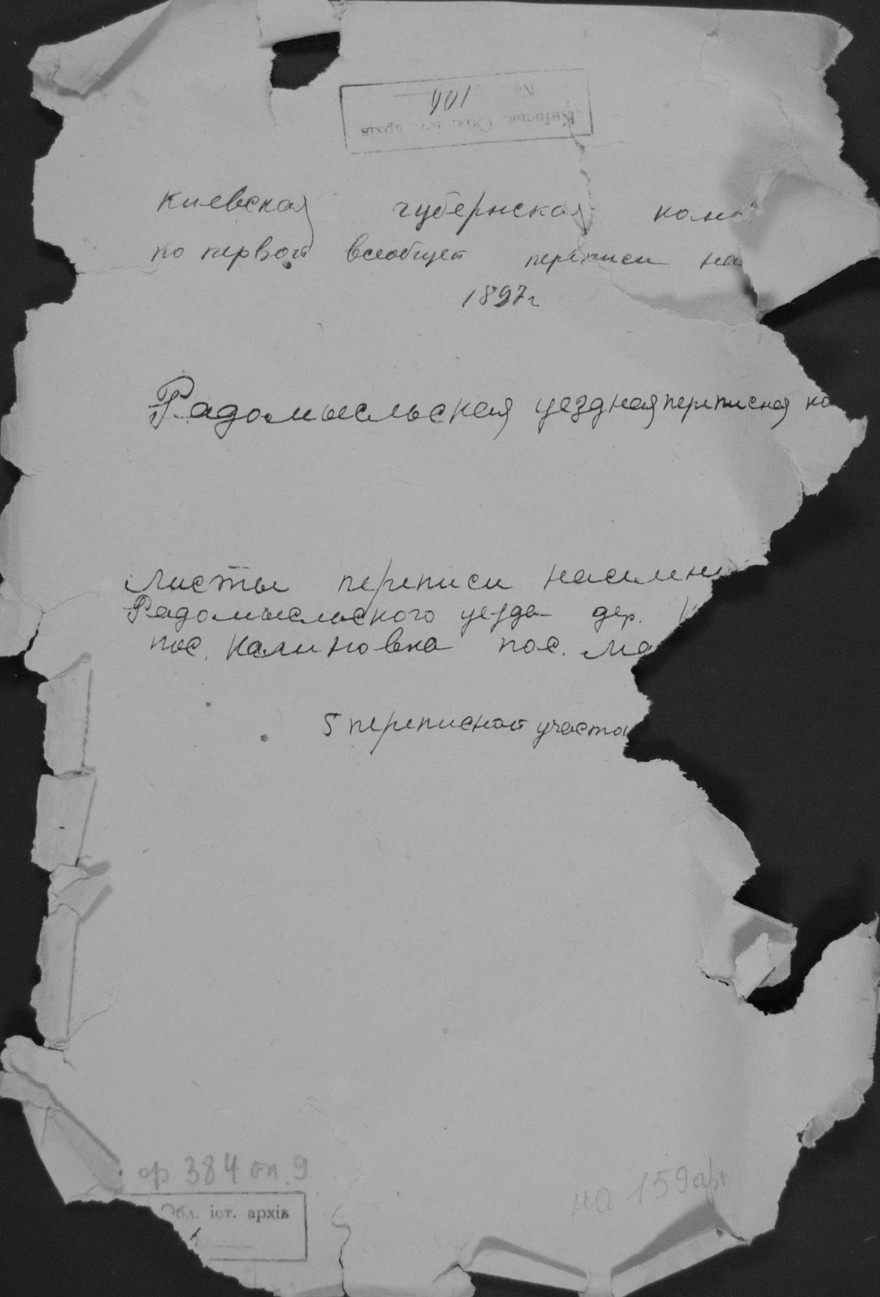 Київськ. Обл. іст. архів
901
Киевская губернская
по первой всеобщей переписи на
1897 г
Радомысльская уездная переписная ко
Листы переписи населен
Радомысльского уезда дер.
пос. Калиновка пос. Ма
5 переписной участо
ф 384 оп. 9
на 159 арк
Обл. іст. архів